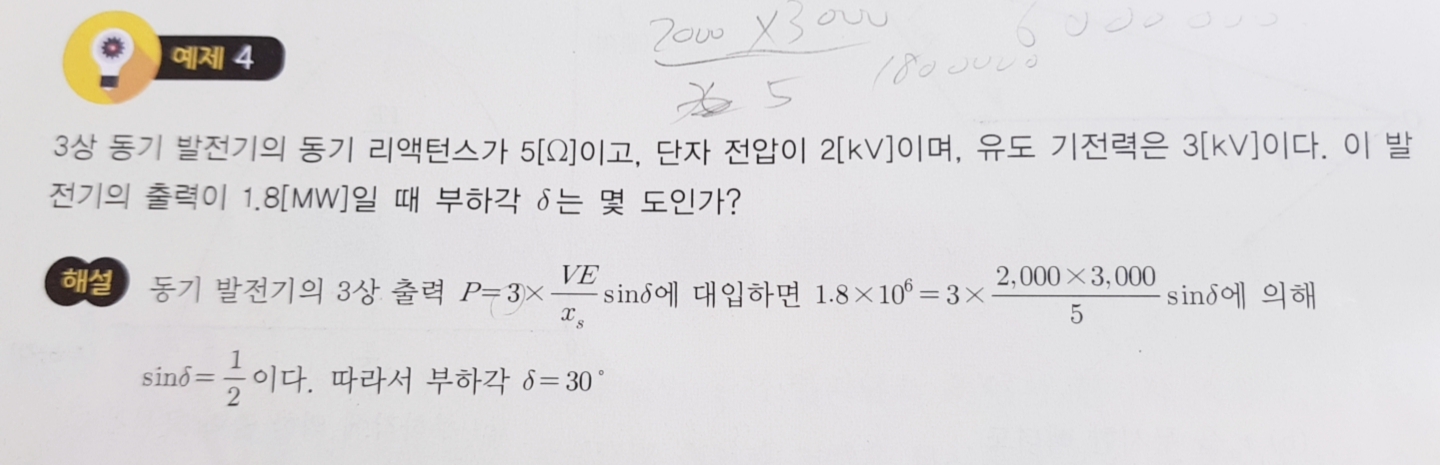 2000 X 3000 6000000
5 1800000
예제 4
3상 동기 발전기의 동기 리액턴스가 5[Ω]이고, 단자 전압이 2[kV]이며, 유도 기전력은 3[kV]이다. 이 발
전기의 출력이 1.8[MW]일 때 부하각 δ는 몇 도인가?
해설 동기 발전기의 3상 출력 P=3×VE/x_s sinδ에 대입하면 1.8×10⁶=3×2,000×3,000/5 sinδ에 의해
sinδ=1/2이다. 따라서 부하각 δ=30°